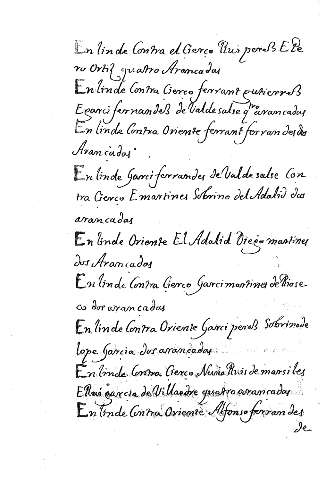 En linde Contra el Cierço Rui peres E Pe
ro Ortiz quatro Arancadas
En linde Contra Cierço ferrant gutierres
E garci fernandes de Valde salse qtro arancadas
En linde Contra Oriente ferrant ferrandes dos
Arancadas
En linde Garci ferrandes de Valde salse Con
tra Cierço E martines Sobrino del Adalid dos
arancadas
En linde Oriente El Adalid Diego martines
dos Arancadas
En linde Contra Cierço Garci martines de Riose
co dos arancadas
En linde Contra Oriente Garci peres Sobrino de
lope Garcia dos arrancadas
En linde Contra Cierço Nuño Ruis de marsiles
E Rui garcia de Villaodre quatro arancadas
En linde Contra Oriente Alfonso ferrandes
de